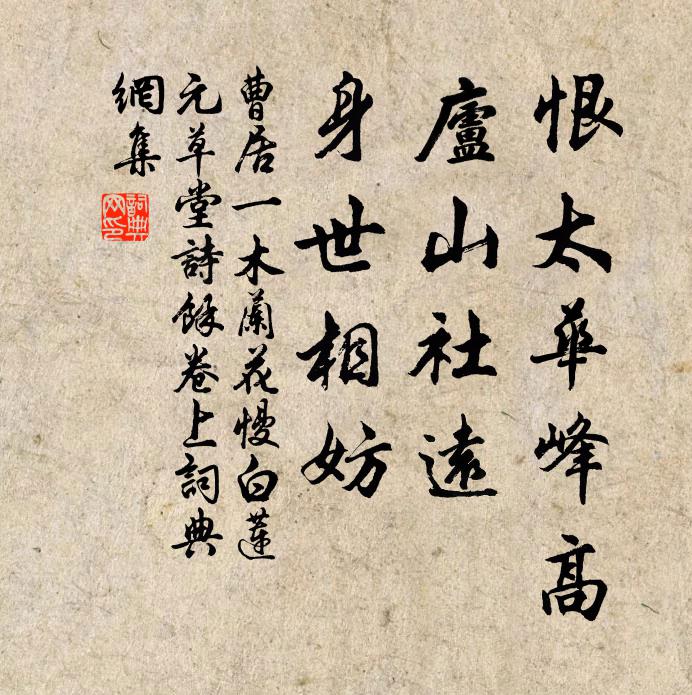 恨太華峰高
廬山社遠
身世相妨
曹居一木蘭花慢白蓮
元草堂詩餘卷上詞典
網集
詞典網印